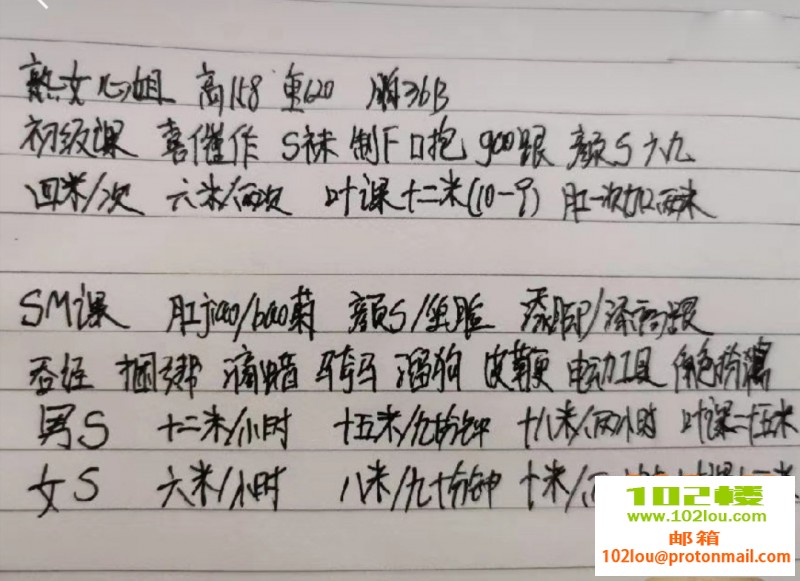 熟女心姐 高158 重620 胸36B
初级课 喜催作 S袜 制F 口抱 gao跟 颜S 六九
四米/次 六米/两次 叶课十二米(10-9) 肛一次加两米
SM课 肛jiao/bao菊 颜S/坐脸 舔脚/舔高跟
吞经 捆绑 滴蜡 骑马 溜狗 皮鞭 电动工具 角色扮演
男S 十二米/小时 十五米/九十分钟 十八米/两小时 叶课二十五米
女S 六米/小时 八米/九十分钟 十米/
102楼
www.102lou.com
邮箱
102lou@protonmail.com